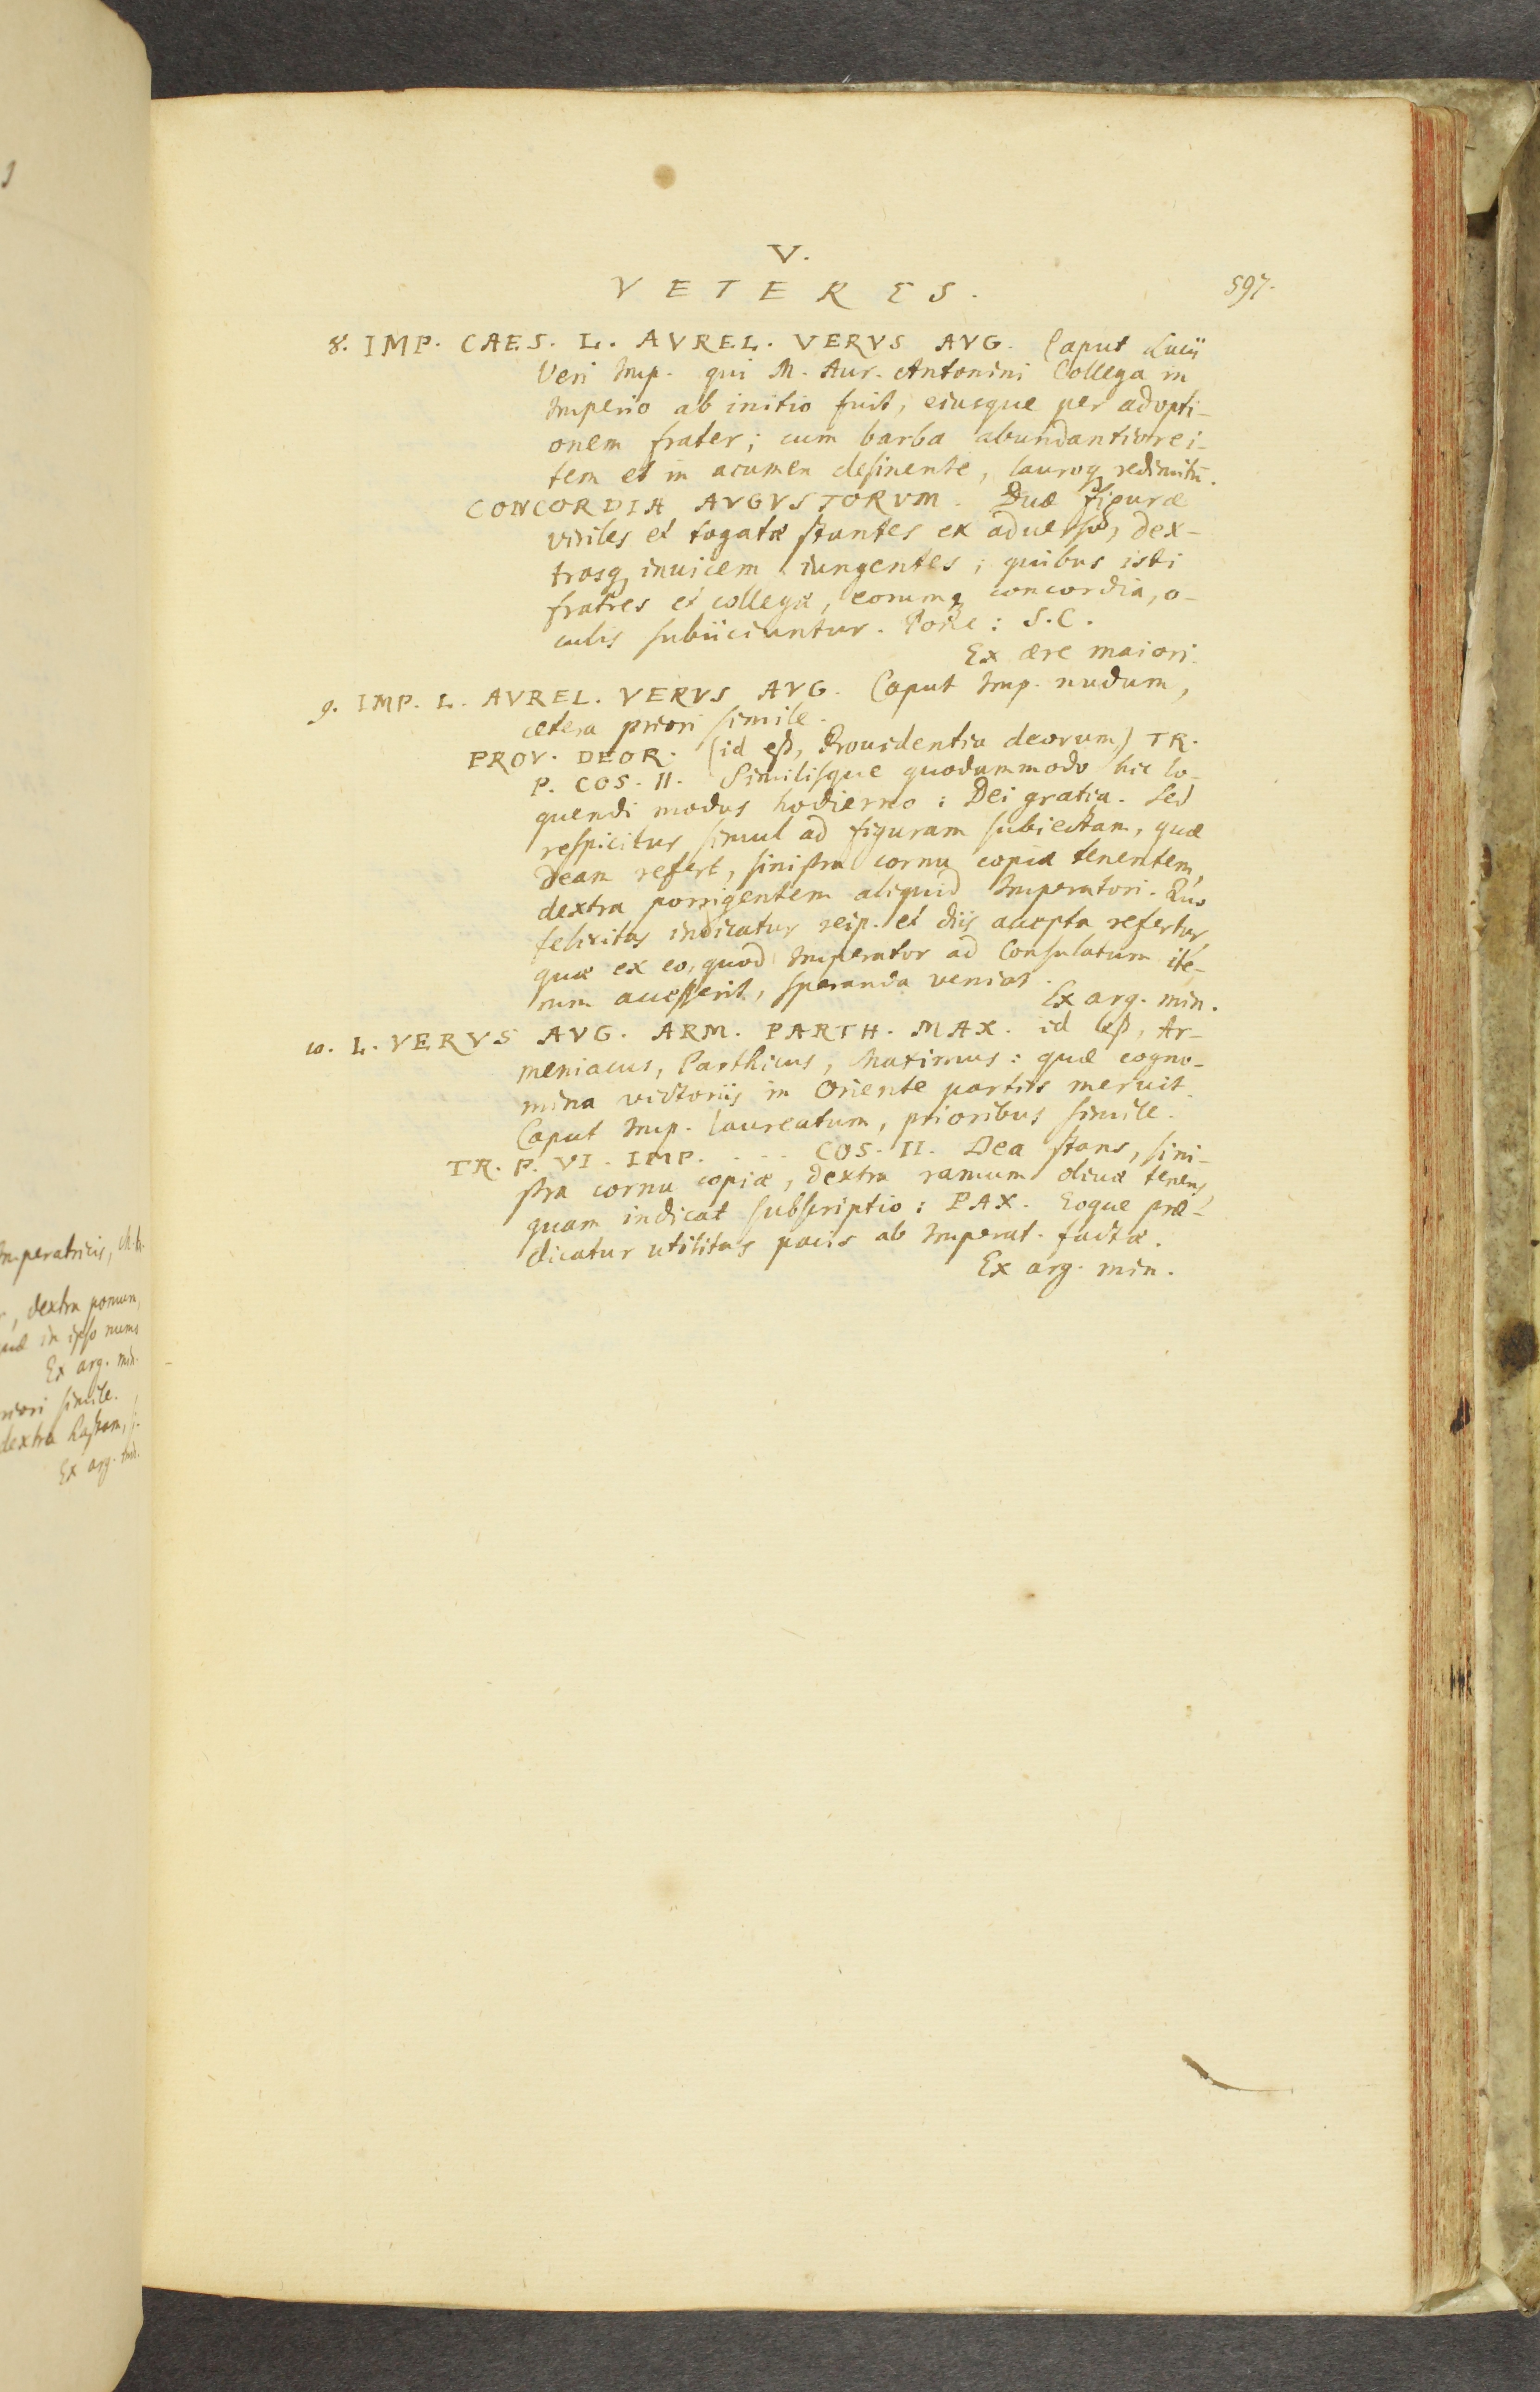 V.
VETERES.
597.
8. IMP. CAES. L. AVREL. VERVS AVG. Caput Lucii
Veri Imp. qui M. Aur. Antonini Collega in
Imperio ab initio fuit, eiusque per adopti-
onem frater; cum barba abundantiore i-
tem et in acumen desinente, lauroq; redimitū.
CONCORDIA AVGVSTORVM. Duæ figuræ
viriles et togatæ stantes ex aduerso, dex-
trasq; inuicem iungentes; quibus isti
fratres et collegæ, eorumq; concordia, o-
culis subiiciuntur. Pone: S.C.
Ex ære maiori.
9. IMP. L. AVREL. VERVS AVG. Caput Imp. nudum,
cetera priori simile.
PROV. DEOR. (id est, Prouidentia deorum) TR.
P. COS. II. Similisque quodammodo hic lo-
quendi modus hodierno: Dei gratia. Sed
respicitur simul ad figuram subiectam, quæ
Deam refert, sinistra cornu copiæ tenentem,
dextra porrigentem aliquid Imperatori. Quo
felicitas indicatur reip. et diis accepta refertur,
quæ ex eo, quod Imperator ad Consulatum ite-
rum accesserit, speranda veniat.
Ex arg. min.
10. L. VERVS AVG. ARM. PARTH. MAX. id est, Ar-
meniacus, Parthicus, Maximus: quæ cogno-
mina victoriis in Oriente partis meruit.
Caput Imp. laureatum, prioribus simile.
TR. P. VI. IMP. . . . COS. II. Dea stans, sini-
stra cornu copiæ, dextra ramum oliuæ tenens,
quam indicat subscriptio: PAX. Eoque præ-
dicatur utilitas pacis ab Imperat. factæ.
Ex arg. min.
Imperatricis,
dextra pomum,
in ipso numo
Ex arg. min.
simile.
dextra hastam,
Ex arg.